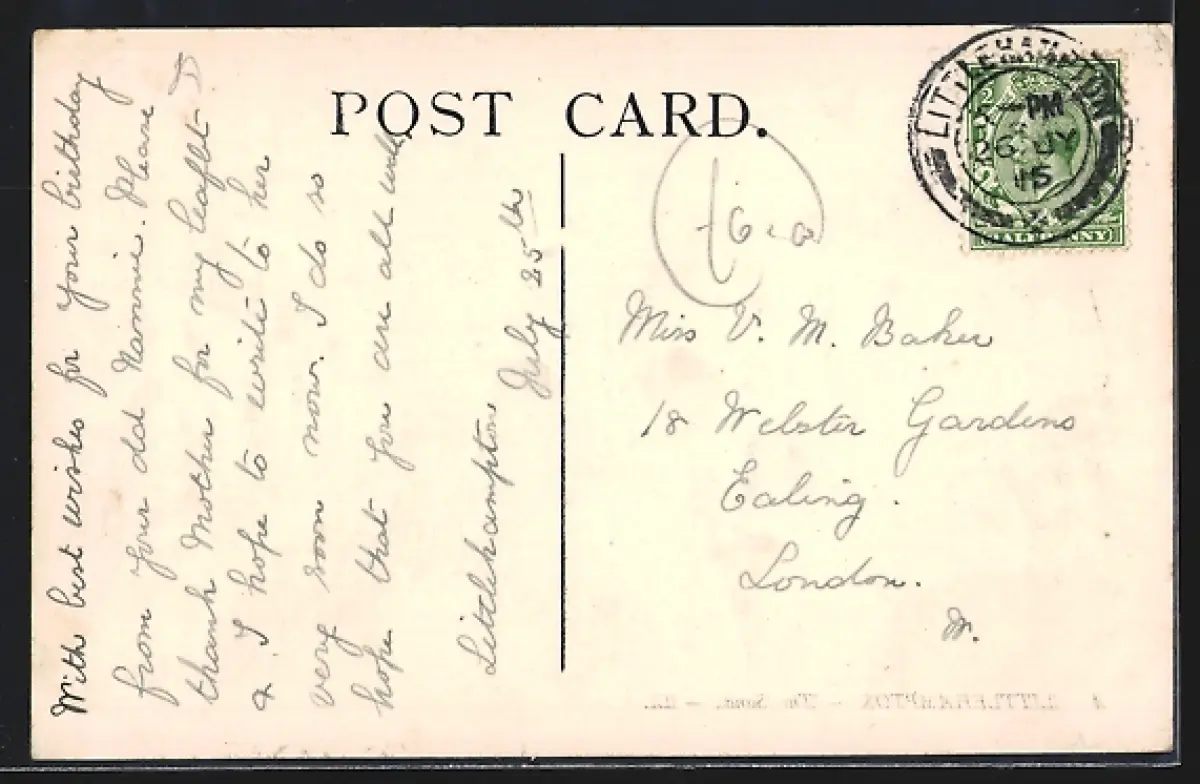 POST CARD.
LITTLEHAMPTON
PM
26 JY
15
HALFPENNY
6
With best wishes for your birthday
from your old Nannie. Please
thank Mother for my leaflet
& I hope to write to her
very soon now. I do so
hope that you are all well
Littlehampton
July 25th
Miss V. M. Baker
18 Webster Gardens
Ealing.
London.
W.
LITTLEHAMPTON - The Sands. - LL.